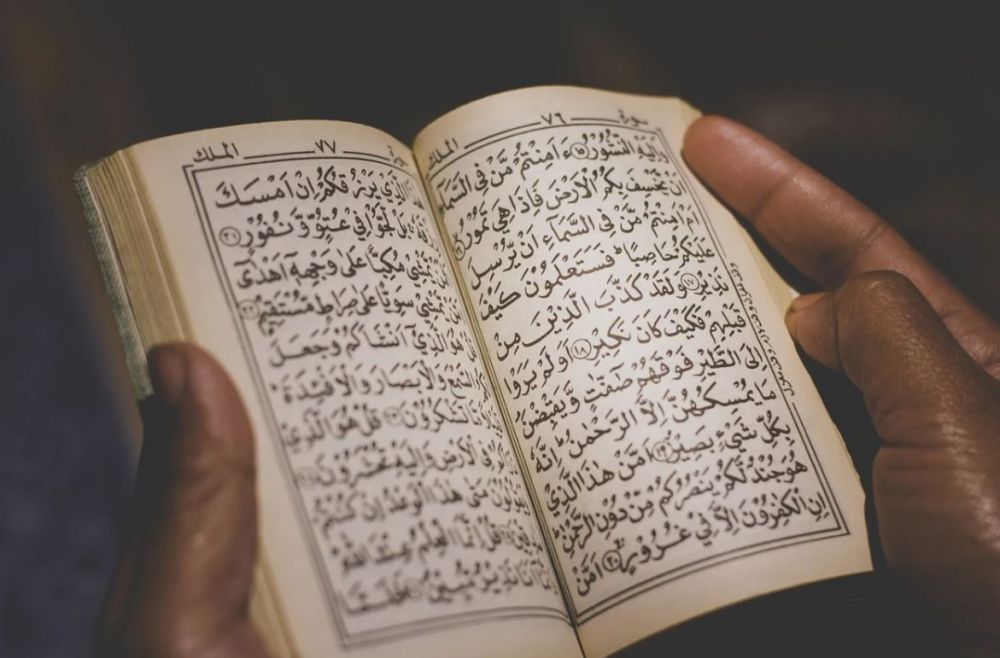 سورة ٧٦ الملك
وَاِلَيْهِ النُّشُوْرُ ۱۵ ءَاَمِنْتُمْ مَّنْ فِي السَّمَآءِ
اَنْ يَّخْسِفَ بِكُمُ الْاَرْضَ فَاِذَا هِيَ تَمُوْرُ
اَمْ اَمِنْتُمْ مَّنْ فِي السَّمَآءِ اَنْ يُّرْسِلَ
عَلَيْكُمْ حَاصِبًا ط فَسَتَعْلَمُوْنَ كَيْفَ
نَذِيْرِ ۱۷ وَلَقَدْ كَذَّبَ الَّذِيْنَ مِنْ
قَبْلِهِمْ فَكَيْفَ كَانَ نَكِيْرِ ۱۸ اَوَلَمْ يَرَوْا
اِلَى الطَّيْرِ فَوْقَهُمْ صٰٓفّٰتٍ وَّيَقْبِضْنَ
مَا يُمْسِكُهُنَّ اِلَّا الرَّحْمٰنُ اِنَّهٗ
بِكُلِّ شَيْءٍ بَصِيْرٌ ۱۹ اَمَّنْ هٰذَا الَّذِيْ
هُوَ جُنْدٌ لَّكُمْ يَنْصُرُكُمْ مِّنْ دُوْنِ الرَّحْمٰنِ
اِنِ الْكٰفِرُوْنَ اِلَّا فِيْ غُرُوْرٍ ۲۰ اَمَّنْ
سورة ٧٧ الملك
الَّذِيْ يَرْزُقُكُمْ اِنْ اَمْسَكَ
رِزْقَهٗ بَلْ لَّجُّوْا فِيْ عُتُوٍّ وَّنُفُوْرٍ ۲۱
يَّمْشِيْ مُكِبًّا عَلٰى وَجْهِهٖٓ اَهْدٰٓى
يَّمْشِيْ سَوِيًّا عَلٰى صِرَاطٍ مُّسْتَقِيْمٍ ۲۲
هُوَ الَّذِيْٓ اَنْشَاَكُمْ وَجَعَلَ
السَّمْعَ وَالْاَبْصَارَ وَالْاَفْئِدَةَ
مَّا تَشْكُرُوْنَ ۲۳ قُلْ هُوَ الَّذِيْ
فِي الْاَرْضِ وَاِلَيْهِ تُحْشَرُوْنَ ۲۴
وَيَقُوْلُوْنَ مَتٰى هٰذَا الْوَعْدُ اِنْ كُنْتُمْ
صٰدِقِيْنَ قُلْ اِنَّمَا الْعِلْمُ عِنْدَ اللّٰهِ
وَاِنَّمَآ اَنَا نَذِيْرٌ مُّبِيْنٌ ۲۶ فَلَمَّا